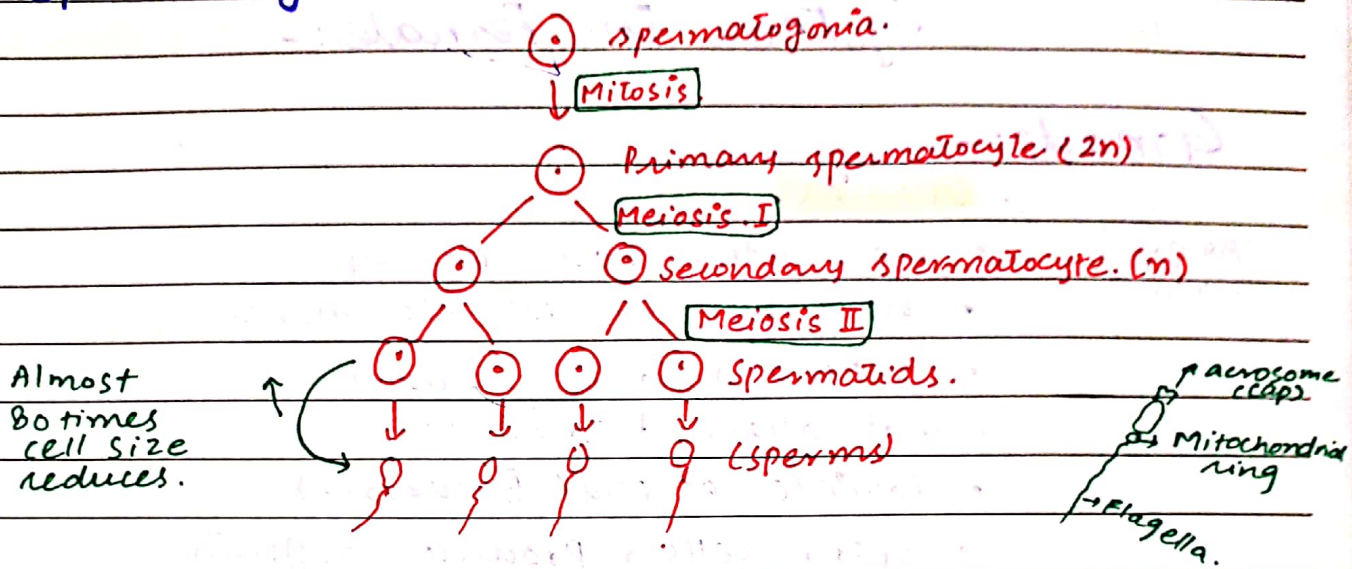 spermatogonia.
Mitosis
Primary spermatocyte (2n)
Meiosis.I
Secondary spermatocyte.(n)
Meiosis II
spermatids.
Almost
80 times
cell size
reduces.
(sperms)
acrosome
(cap)
Mitochondrial
ring
Flagella.